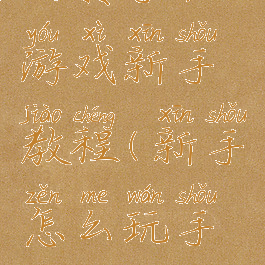 yóu xì xīn shǒu
游戏新手
jiào chéng xīn shǒu
教程(新手
zěn me wán shǒu
怎么玩手